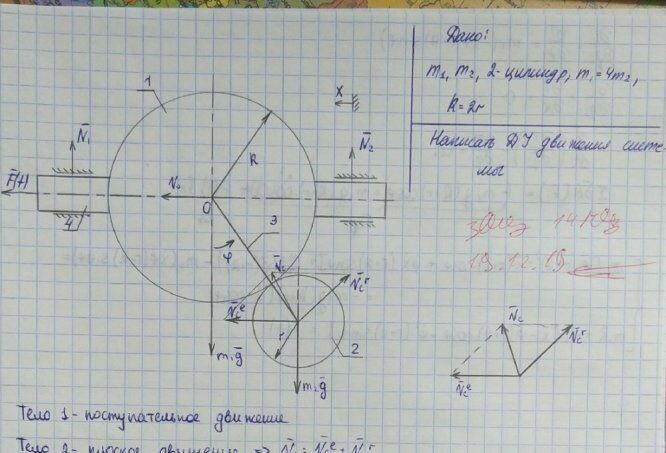 Дано:
m₁, m₂, 2-цилиндр, m₁=4m₂,
R=2r
Написать ДУ движения систе-
мы
1
X
N̄₁
R
N̄₂
F̄(t)
V₀
O
4
3
φ
V̄c
V̄cʳ
V̄cᵉ
r
2
m₁ḡ
m₂ḡ
19.12.19
V̄c
V̄cʳ
V̄cᵉ
Тело 1- поступательное движение
Тело 2- плоское движение => V̄c = V̄cᵉ + V̄cʳ